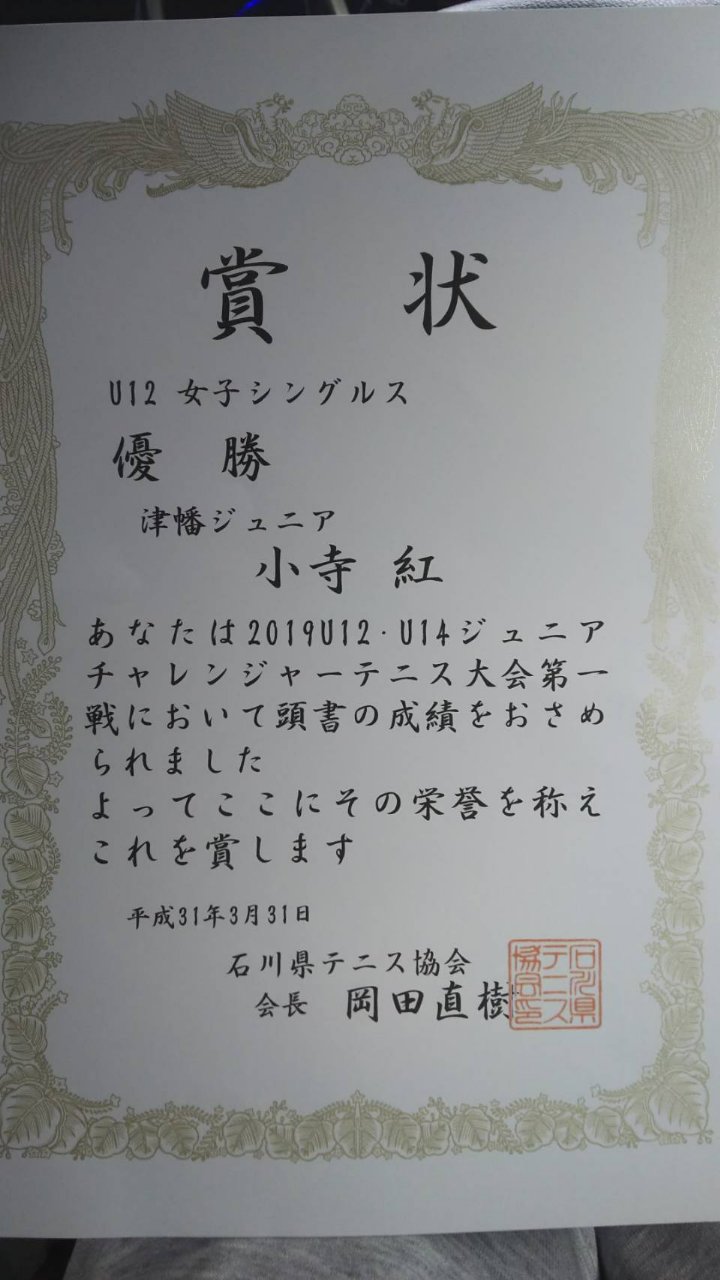 賞 状
U12 女子シングルス
優 勝
津幡ジュニア
小寺 紅
あなたは2019U12·U14ジュニア
チャレンジャーテニス大会第一
戦において頭書の成績をおさめ
られました
よってここにその栄誉を称え
これを賞します
平成31年3月31日
石川県テニス協会
会長 岡田直樹
石川県
テニス
協会印